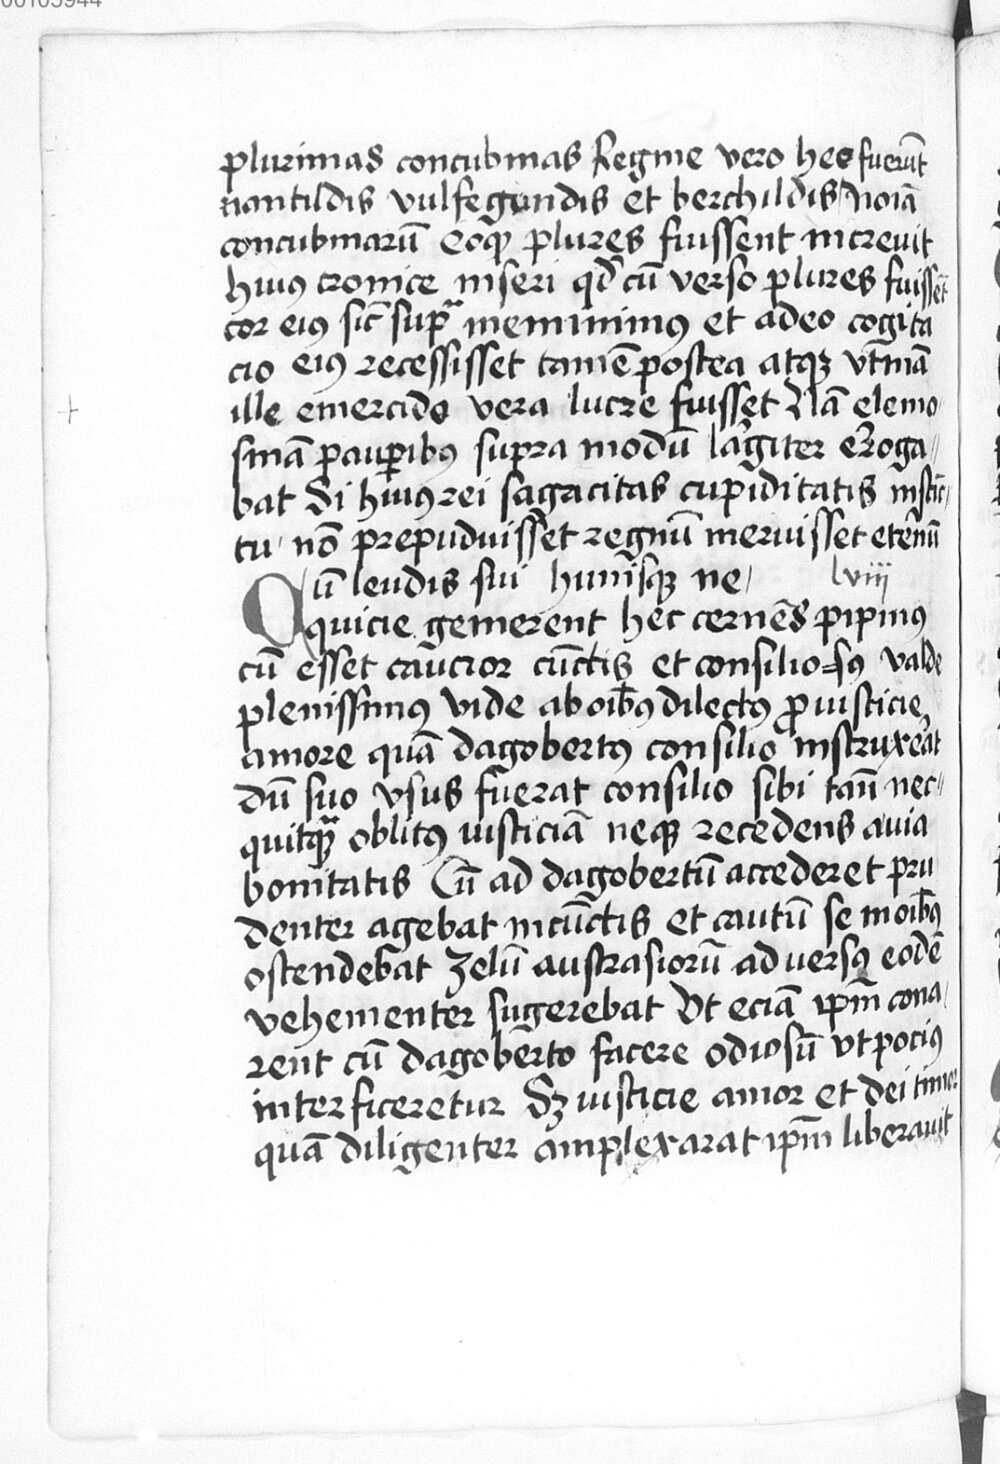 00105944
plurimas concubinas Regine vero hee fuerūt
nantildis vulfegundis et berchildis Noīa
concubinarū Eoqȝ plures fuissent increvit
huiꝰ cronice inseri qd cū verso plures fuissēt
cor eiꝰ sic̄ supᵃ meminimꝰ et adeo cogita
cio eiꝰ recessisset tamē postea atqȝ vtinā
ille emercido vera lucre fuisset Nā elemo
sinā pauꝑibꝰ supra modū largiter eroga
bat Si huiꝰ rei sagacitas cupiditatis instic̄
tu nō prepuduisset regnū meruisset eternū
Qū leudis sui hunisqȝ ne lviii
quicie gemerent hec cernēs pipinꝰ
cū esset caucior cūctis et consilio=sꝰ valde
plenissimꝰ vide ab oībꝰ dilectꝰ ꝓ iusticie
amore quā dagobertꝰ consilio instruxeāt
dū suo vsus fuerat consilio sibi tan̄ nec
quitqᵃ oblitꝰ iusticiā neqȝ recedens a via
bonitatis Cū ad dagobertū accederet pru
denter agebat in cūctis et cautū se in oībꝰ
ostendebat Zelū austrasiorū adversꝰ eodē
vehementer sugerebat Vt eciā ip̄m cona
rent cū dagoberto facere odiosū vt pociꝰ
interficeretur Sȝ iusticie amor et dei timor
quā diligenter amplexarat ip̄m liberauit